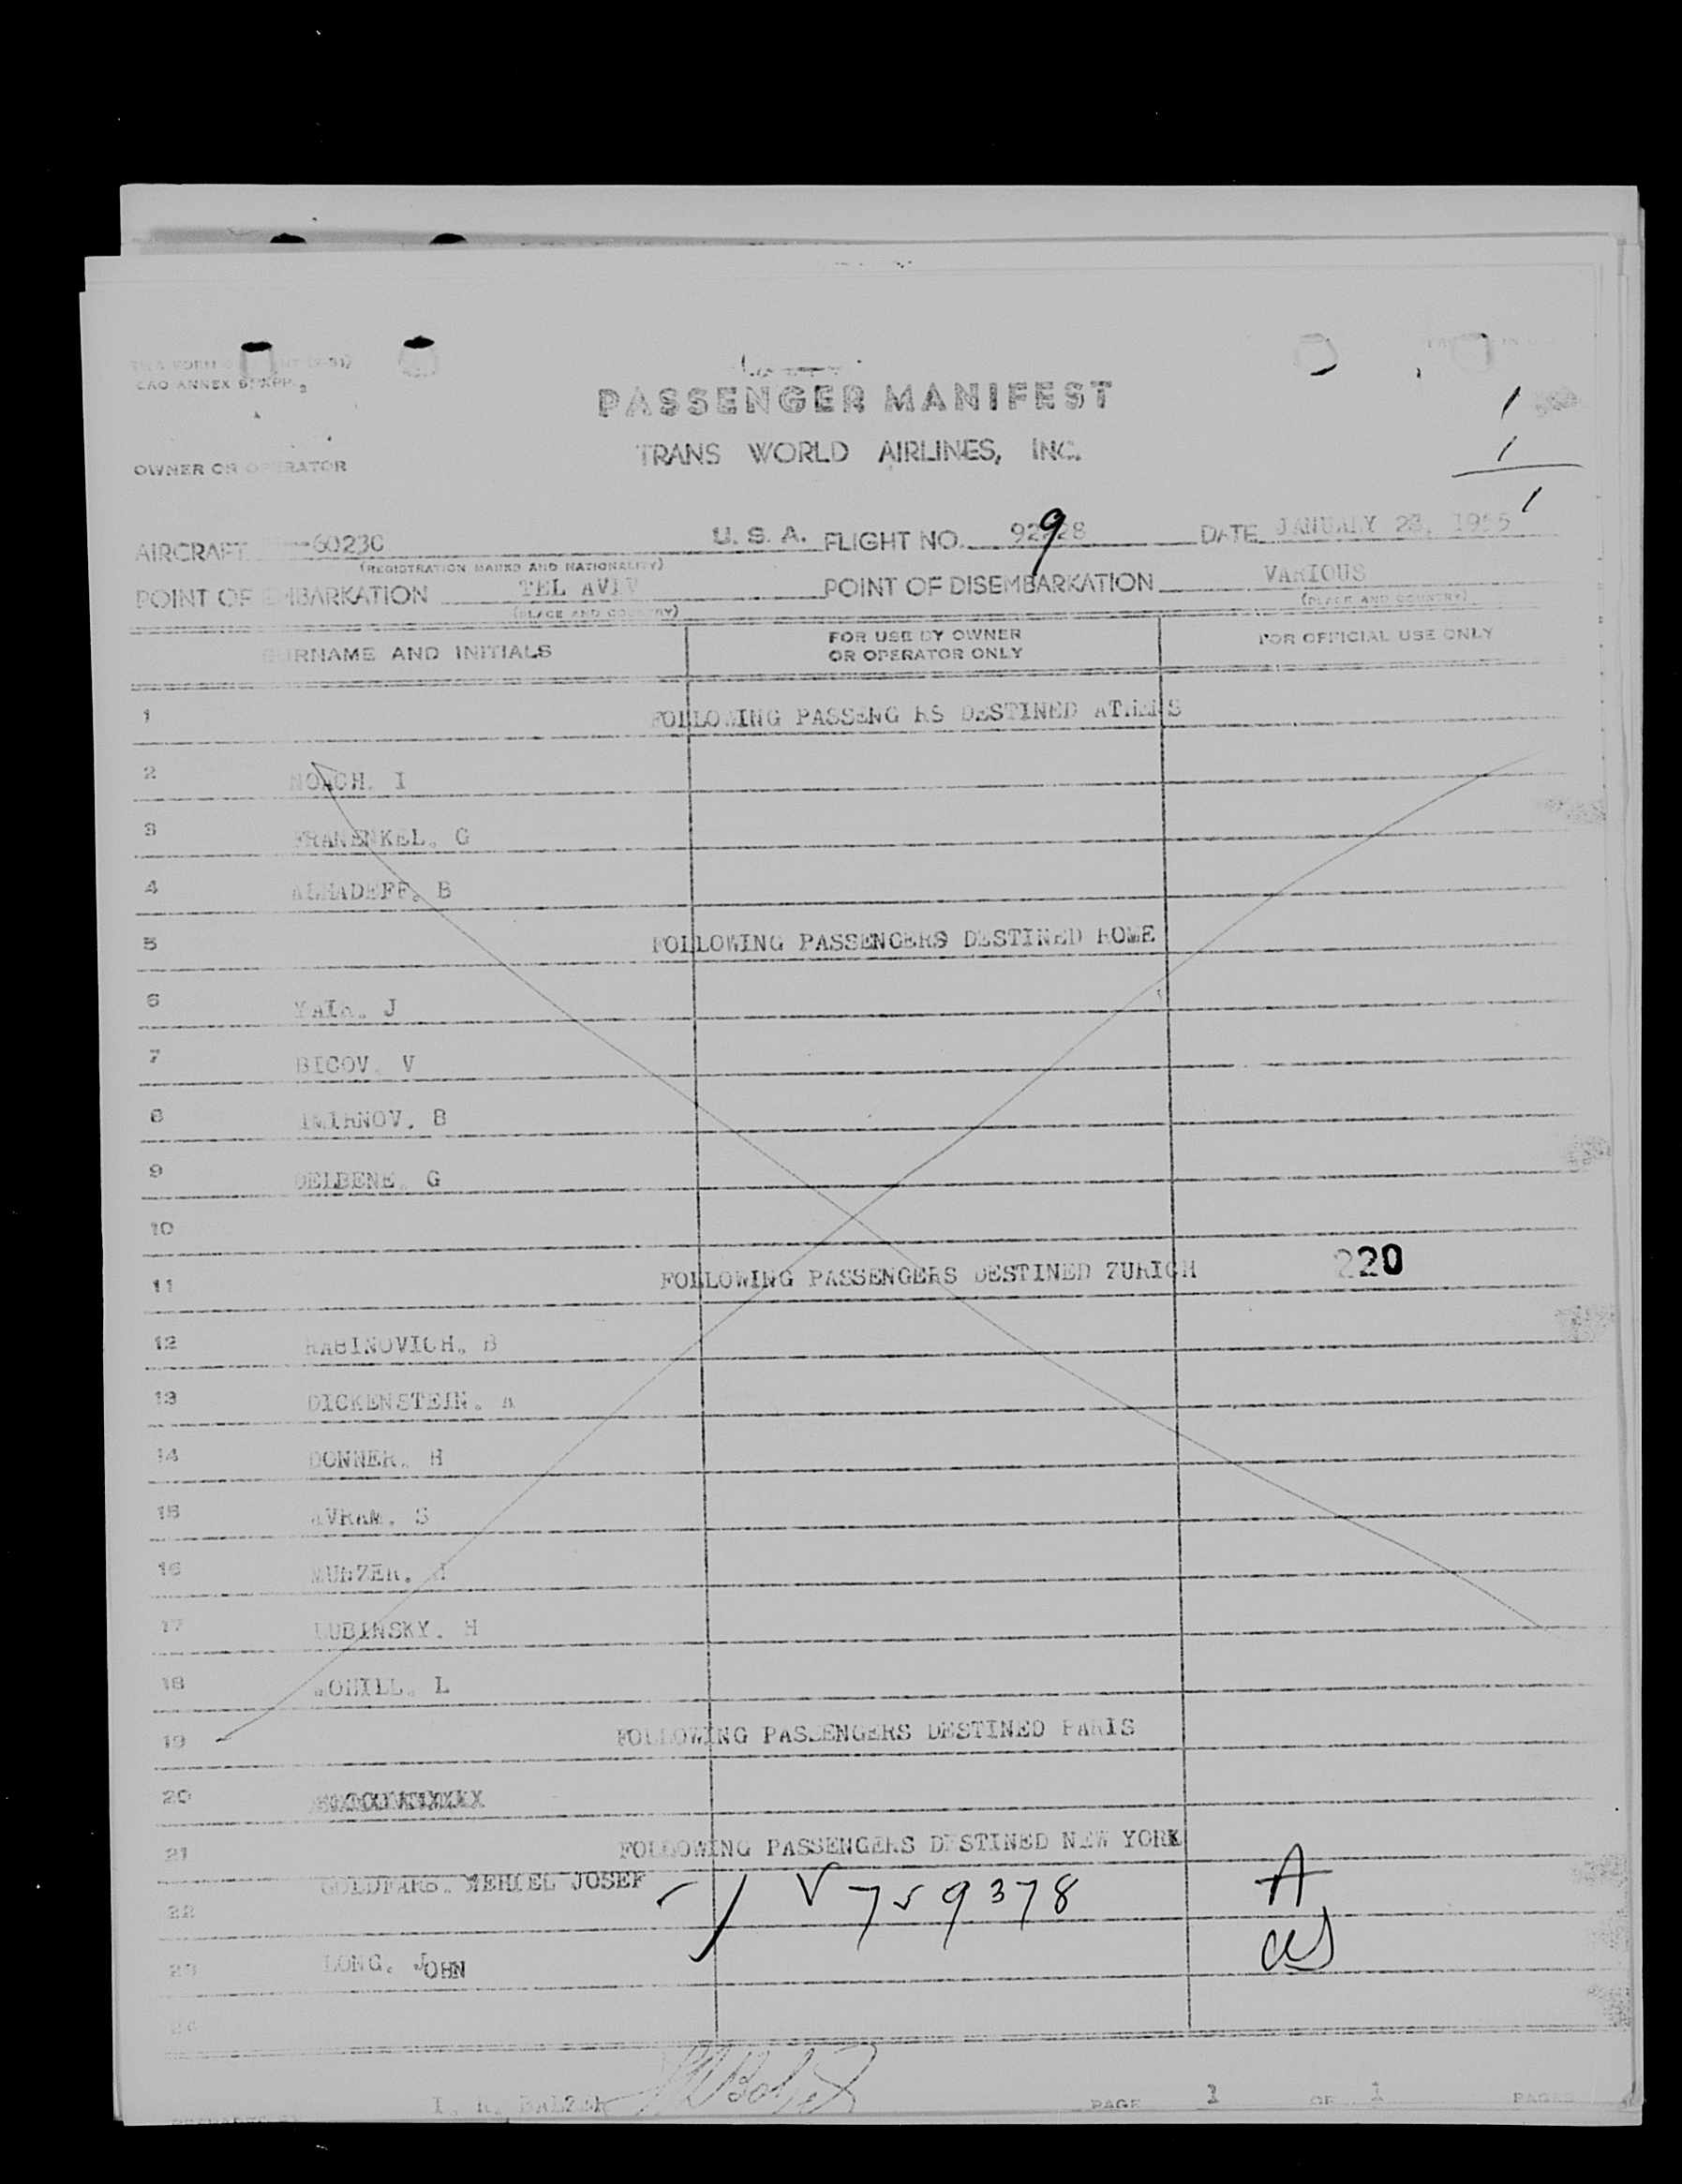 CAO ANNEX 9, APP. 3
PASSENGER MANIFEST
TRANS WORLD AIRLINES, INC.
OWNER OR OPERATOR
1
1
1
AIRCRAFT 6023C U. S. A. FLIGHT NO. 92 9 28 DATE JANUARY 23, 1955
(REGISTRATION MARKS AND NATIONALITY)
POINT OF EMBARKATION TEL AVIV POINT OF DISEMBARKATION VARIOUS
(PLACE AND COUNTRY) (PLACE AND COUNTRY)
SURNAME AND INITIALS FOR USE BY OWNER OR OPERATOR ONLY FOR OFFICIAL USE ONLY
1 FOLLOWING PASSENG RS DESTINED ATHENS
2 NOACH. I
3 FRANENKEL. G
4 ALHADEFF. B
5 FOLLOWING PASSENGERS DESTINED ROME
6 YAIR. J
7 BICOV. V
8 B
9 DELBENE. G
10
11 FOLLOWING PASSENGERS DESTINED ZURICH 220
12 RABINOVICH. B
13 DICKENSTEIN. A
14 DONNER. H
15 AVRAM. S
16 MUNZER. H
17 LUBINSKY. H
18 L
19 FOLLOWING PASSENGERS DESTINED PARIS
20
21 FOLLOWING PASSENGERS DESTINED NEW YORK
22 GOLDFARB. MEHIEL JOSEF V759378 A
23 LONG. JOHN
24
I. R. BALZER PAGE 1 OF 1 PAGES